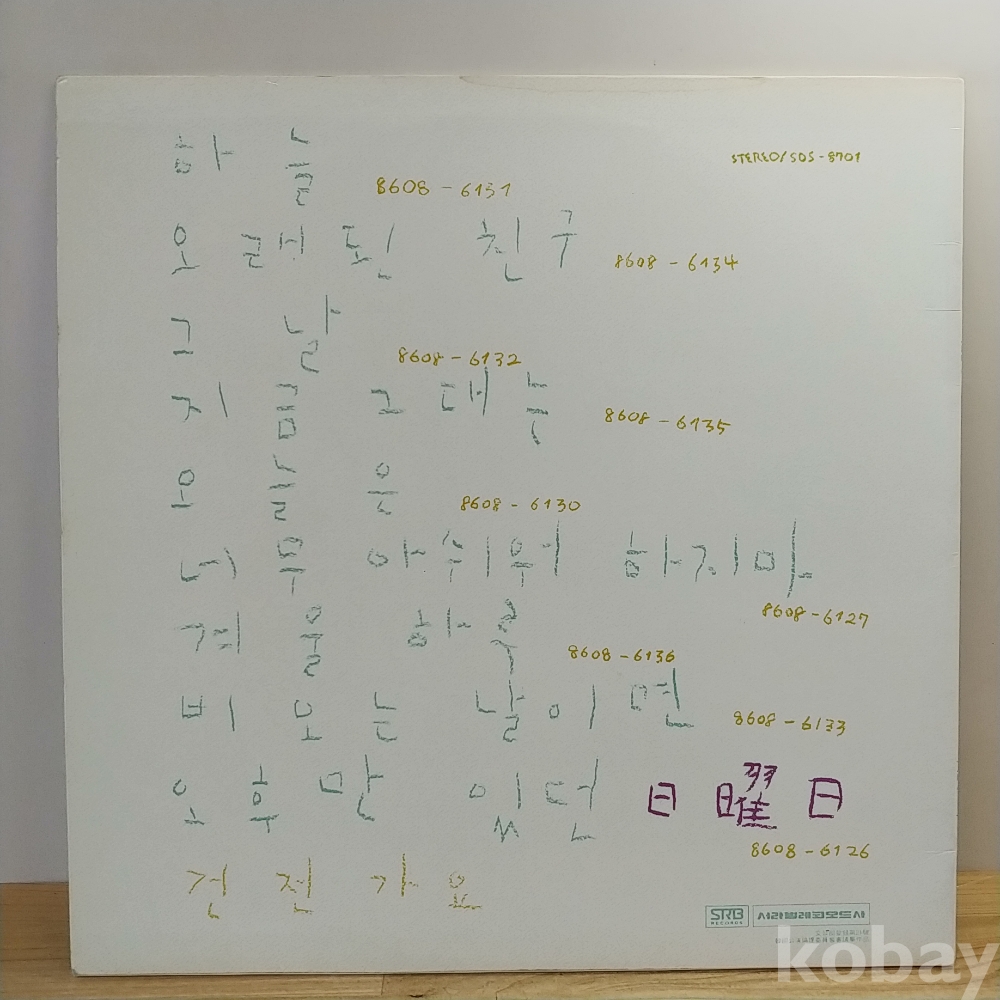 STEREO/SDS-8701
하늘 8608-6131
오래된 친구 8608-6134
그날 8608-6132
지금 그대는 8608-6135
오늘은 8608-6130
너무 아쉬워 하지마 8608-6127
겨울 하루 8608-6136
비오는 날이면 8608-6133
오후만 있던 日曜日 8608-6126
건전가요
SRB RECORDS 서라벌레코오드사
kobay